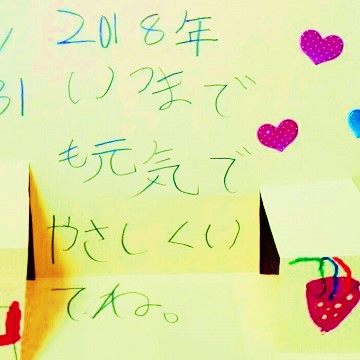 2018年
31
いつまで
も元気で
やさしくい
てね。